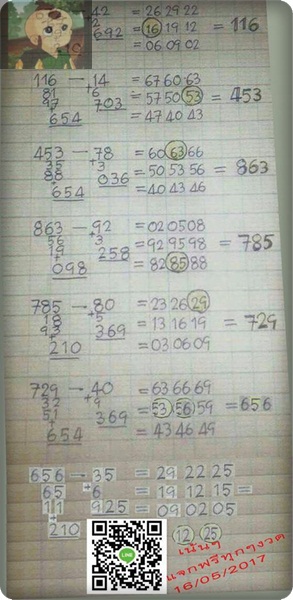 42 = 26 29 22
+2
692 = 16 19 12 = 116
= 06 09 02
116 — 14 = 67 60 63
81 +6
97 703 = 57 50 53 = 453
654 = 47 40 43
453 — 78 = 60 63 66
35 +3
88 036 = 50 53 56 = 863
654 = 40 43 46
863 — 92 = 02 05 08
56 +3
19 258 = 92 95 98 = 785
098 = 82 85 88
785 — 80 = 23 26 29
18 +5
93 369 = 13 16 19 = 729
210 = 03 06 09
729 — 40 = 63 66 69
32 +9
51 369 = 53 56 59 = 656
654 = 43 46 49
656 — 35 = 29 22 25
65 +6 = 19 12 15 =
11 925 = 09 02 05
210
LINE
12 25
เน้นๆ
แจกฟรีทุกๆงวด
16/05/2017